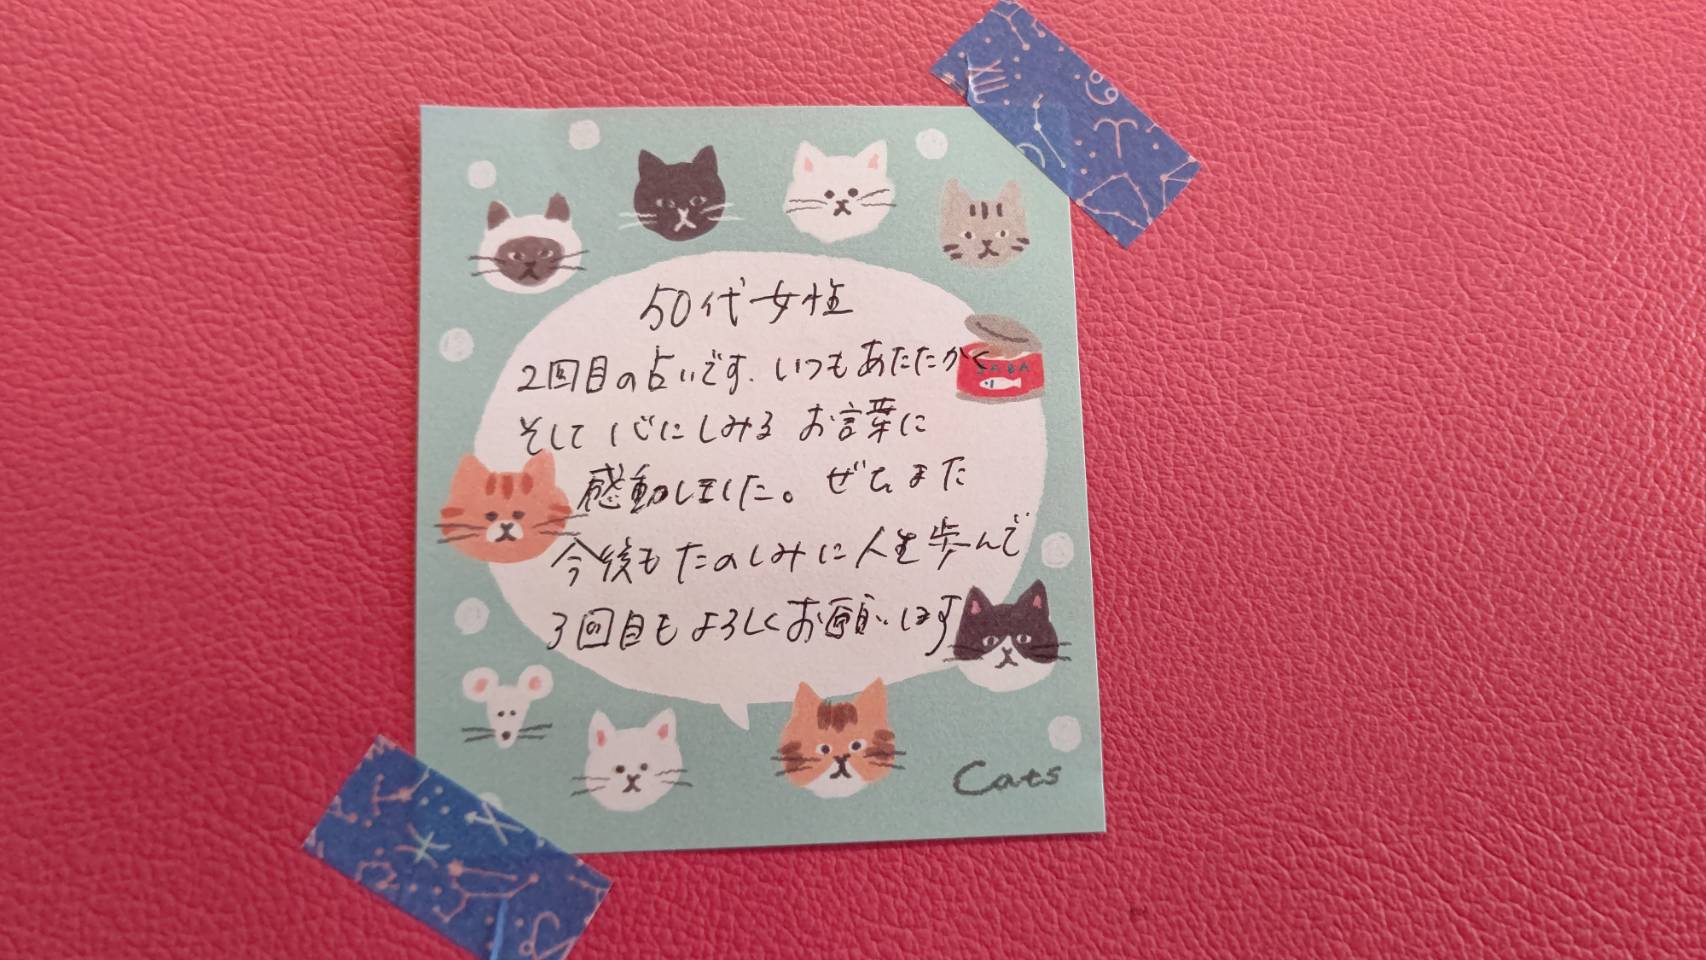 50代女性
2回目の占いです. いつもあたたかく
そして心にしみるお言葉に
感動しました。ぜひまた
今後もたのしみに人生歩んで
3回目もよろしくお願いします
SABA
Cats
XII